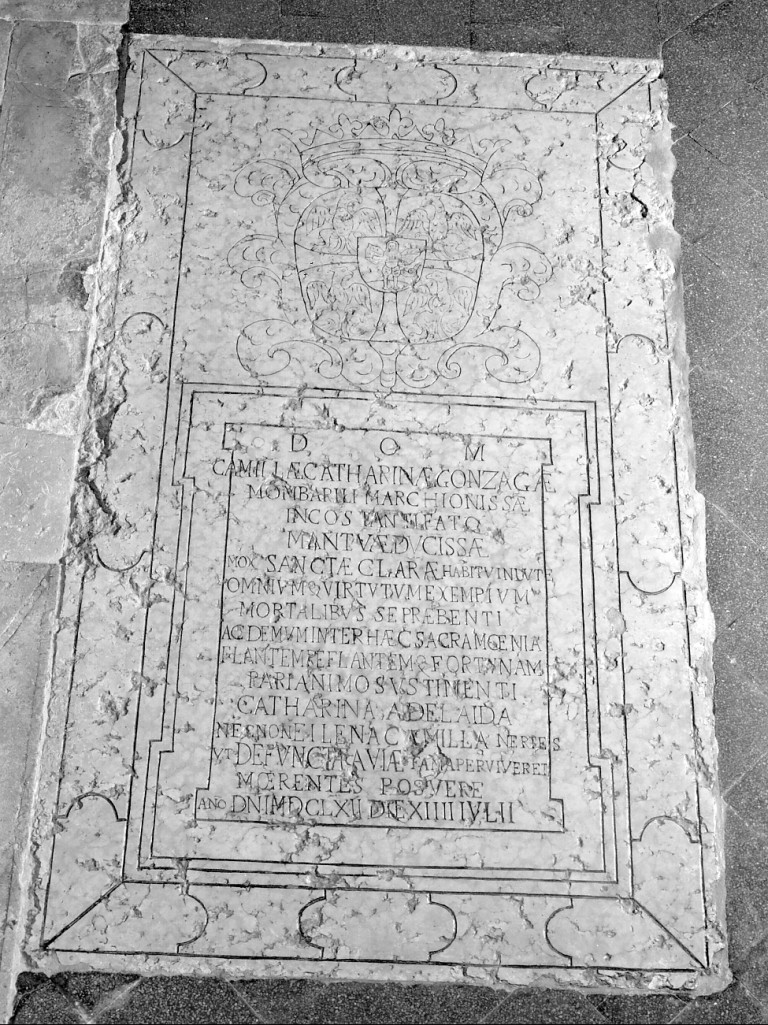 D O M
CAMILLÆ CATHARINÆ GONZAGÆ
MARCHIONISSÆ
INCOSTANTI FATO
MANTVÆ DVCISSÆ
MOX SANCTÆ CLARÆ HABITV INDVTÆ
OMNIVMQ VIRTVTVM EXEMPLVM
MORTALIBVS SE PRÆBENTI
AC DEMVM INTER HÆC SACRA MŒNIA
FLANTEM REFLANTEMQ FORTVNAM
PARI ANIMO SVSTINENTI
CATHARINA ADELAIDA
NECNON ELENA CAMILLA NEPTES
VT DEFVNCTA AVIÆ FAMA PERVIVERET
MŒRENTES POSVERE
ANO DNI MDCLXII DIE XIIII IVLII